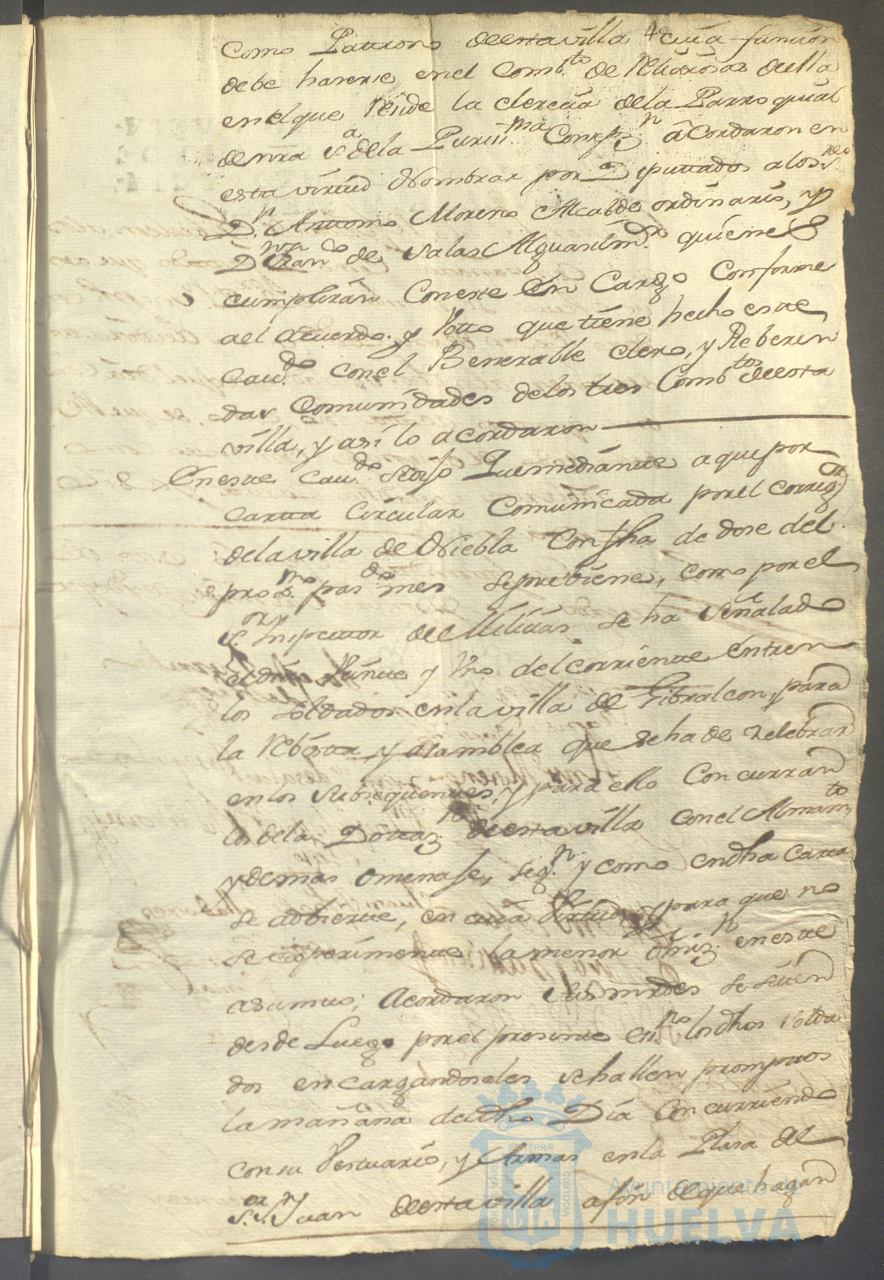 como Patrono de esta villa cuia función
debe hacerse, en el Combto de Religiosas de ella
en el que reside la clerecia de la Parroquial
de nra Sa de la Purissma Concepn acordaron en
esta virtud Nombrar por Diputados a los sres
Dn Antonio Moreno Alcalde ordinario, y
Dn Franco de Salas Alguasil mr quienes
cumplirán con este en Cargo Conforme
a el acuerdo y Voto que tiene hecho este
cavdo con el Benerable clero, y Reberen
das Comunidades de los tres Combtos de esta
villa, y asi lo acordaron
En este Cavdo se dijo Que mediante a que por
carta circular Comunicada por el corregor
de la villa de Niebla con fha de dose del
proxmo pasdo mes se prebiene, como por el
Sor Inspector de Milicias se ha señalado
el dia Vainte y Uno del corriente entren
los Soldados en la villa de Gibraleon para
la rebista y asamblea que se ha de zelebrar
en los subsequentes, y para ello concurran
los de la Dotazn de esta villa con el Armamto
y demas omenaje, segn y como en dha Carta
se adbierte, en cuia Virtud y para que no
se experimente la menor omizn en este
asumto; Acordaron sus mrdes se siten
desde Luego por el presente esno los dhos solda
dos encargandoseles se hallen promptos
la mañana de dho Dia concurriendo
con su Vestuario, y Armas en la Plasa de
Sor Sn Juan de esta villa a fin de que hagan
Ayuntamiento de
HUELVA